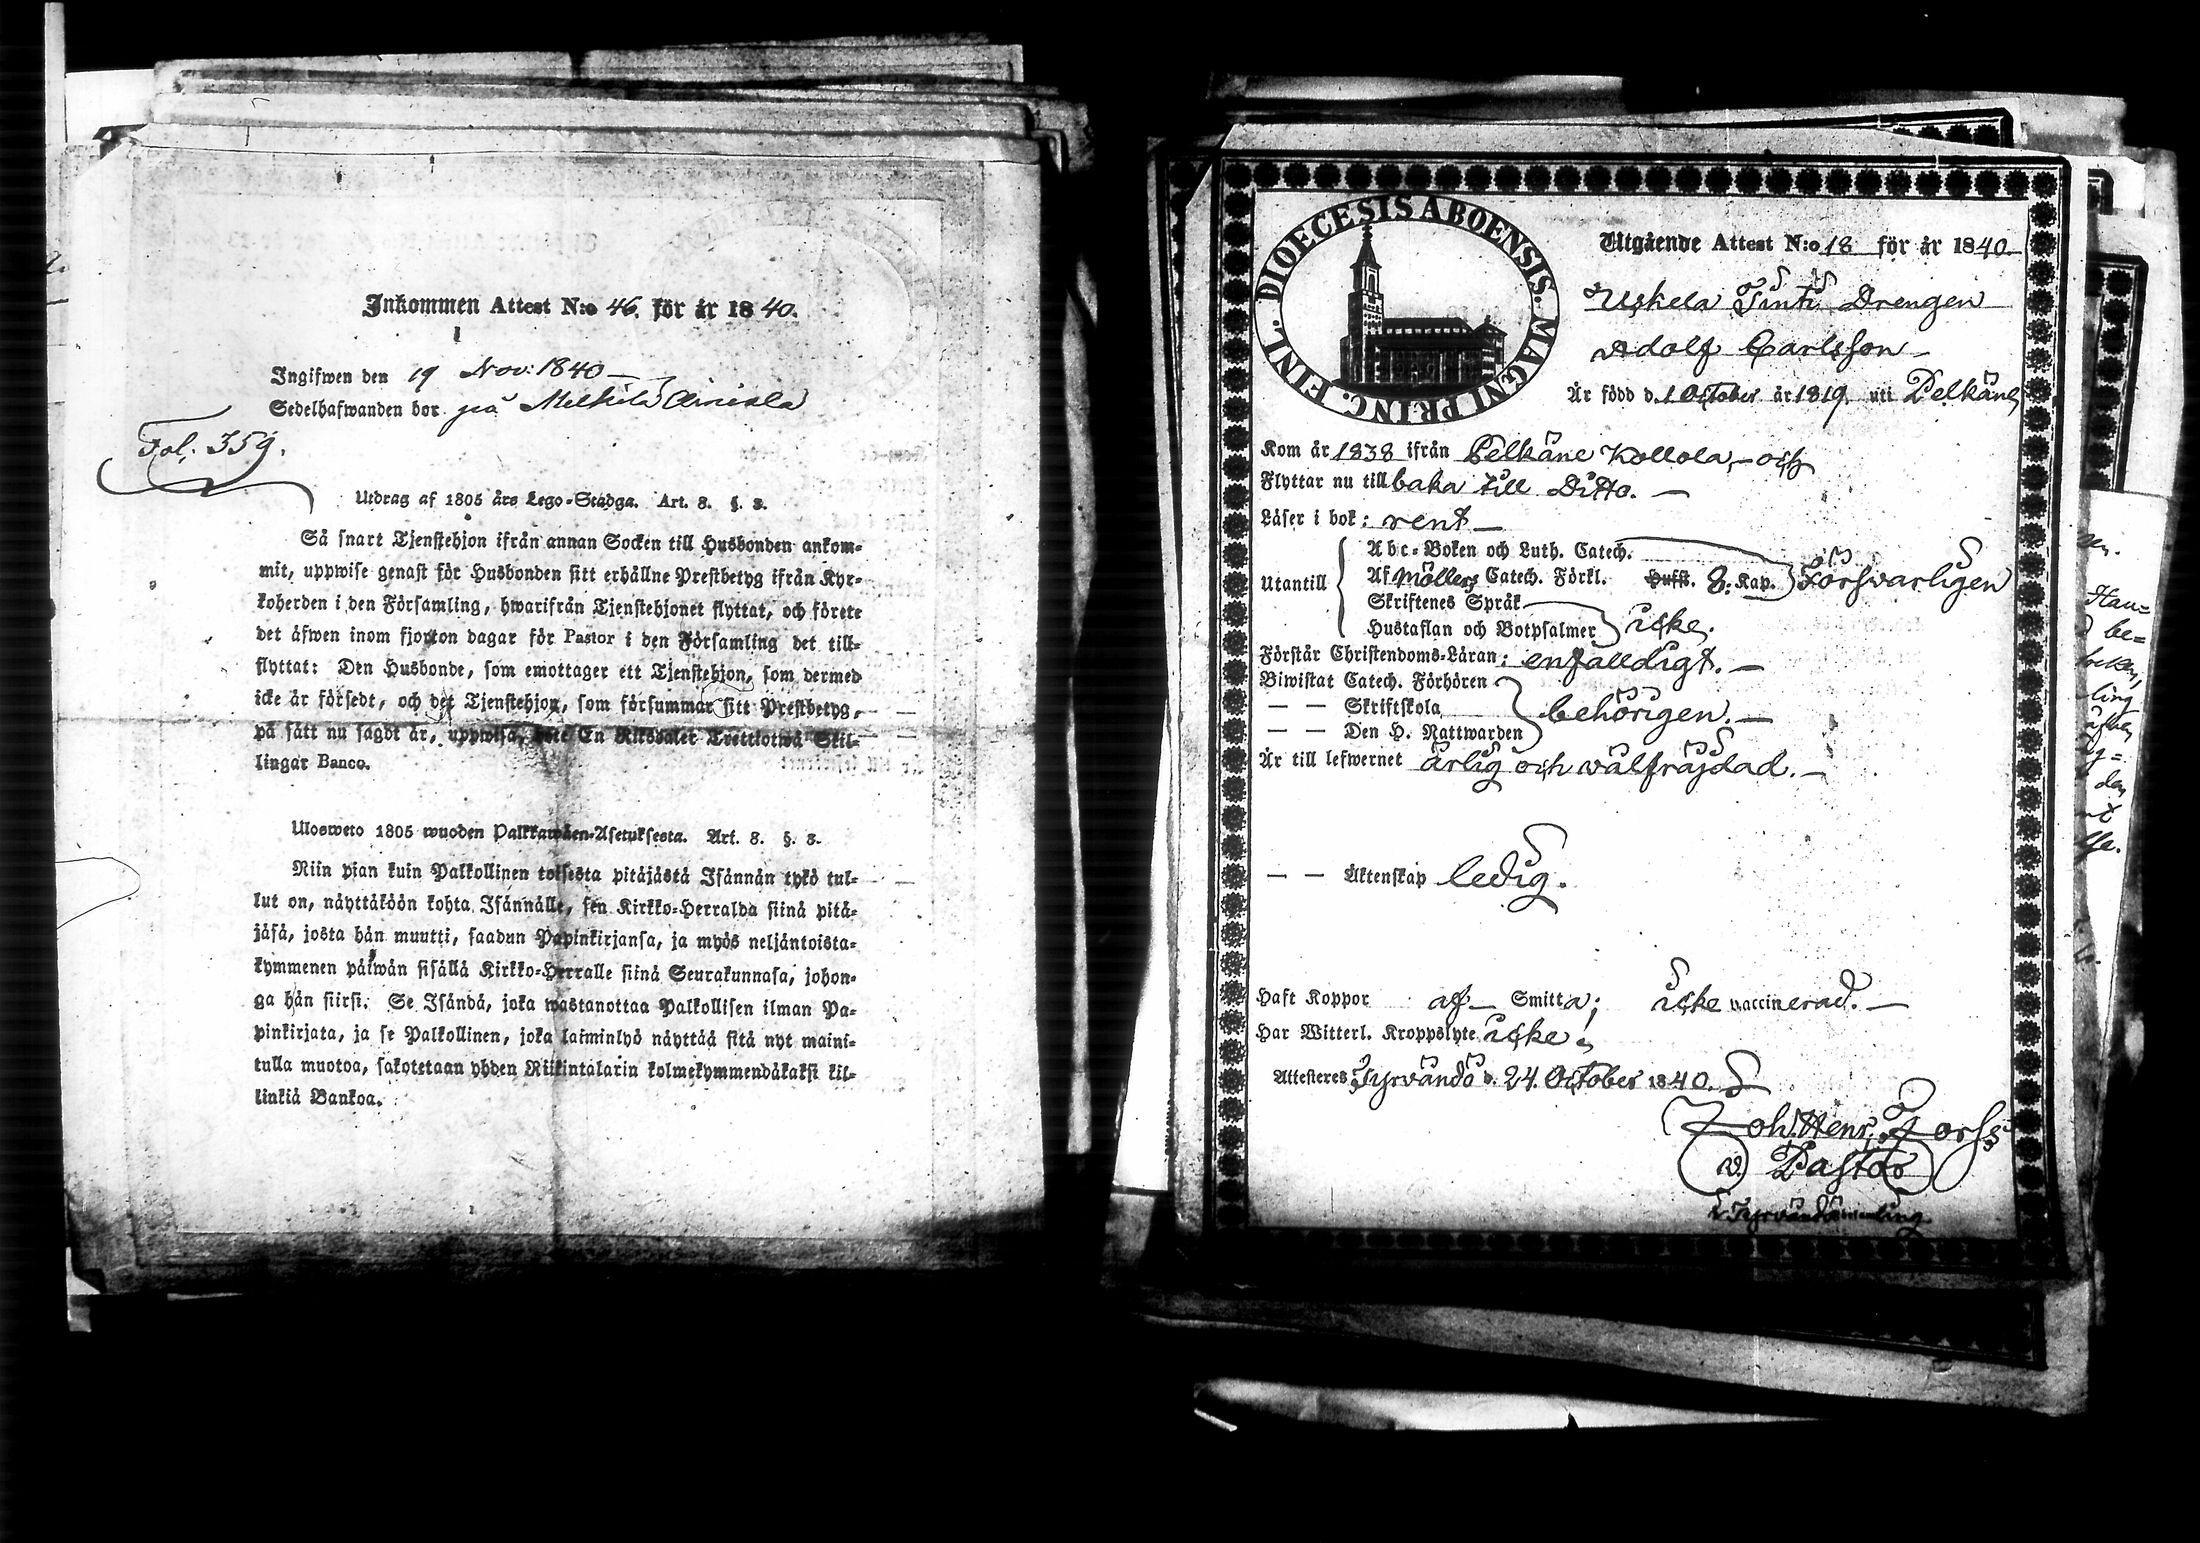 Inkommen Attest N:o 46. för år 1840.
Ingifwen den 19 Nov: 1840
Sedelhafwanden bor på
Fol. 359.
Utdrag af 1805 års Lego-Stadga. Art. 8. §. 3.
Så snart Tjenstehjon ifrån annan Socken till Husbonden ankom-
mit, uppwise genast för Husbonden sitt erhållne Prestbetyg ifrån Kyr-
koherden i den Församling, hwarifrån Tjenstehjonet flyttat, och förete
det äfwen inom fjorton dagar för Pastor i den Församling det till-
flyttat: Den Husbonde, som emottager ett Tjenstehjon, som dermed
icke är försedt, och det Tjenstehjon, som försummar sitt Prestbetyg,
på sätt nu sagdt är, uppwisa, böte En Riksdaler Trettiotwå Skil-
lingar Banco.
Ulosweto 1805 wuoden Palkkawäen-Asetuksesta. Art. 8. §. 3.
Niin pian kuin Palkollinen toisesta pitäjästä Isännän tykö tul-
lut on, näyttäköön kohta Isännälle, sen Kirkko-Herralda siinä pitä-
jäsä, josta hän muutti, saadun Papinkirjansa, ja myös neljäntoista-
kymmenen päiwän sisällä Kirkko-Herralle siinä Seurakunnasa, johon-
ga hän siirsi. Se Isändä, joka wastanottaa Palkollisen ilman Pa-
pinkirjata, ja se Palkollinen, joka laiminlyö näyttää sitä nyt maini-
tulla muotoa, sakotetaan yhden Riikintalarin kolmekymmendäkaksi kil-
linkiä Bankoa.
DIOECESIS ABOENSIS. MAGNI PRINC. FINL.
Utgående Attest N:o 18 för år 1840
Uskela Drengen
Adolf Carlsson
Är född d. 1 October år 1819. uti Pelkäne
Kom år 1838 ifrån Pelkäne Kollola, och
Flyttar nu till baka till Ditto.
Läser i bok: rent
Utantill
Abc-Boken och Luth. Catech.
Af Möllers Catech. Förkl. Hufst. 8: Kap. Försvarligen
Skriftenes Språk
Hustaflan och Botpsalmer icke.
Förstår Christendoms-Läran: enfalldigt.
Biwistat Catech. Förhören
— — Skriftskola behörigen.
— — Den H. Nattwarden
Är till lefwernet ärlig och välfräjdad.
— — Äktenskap ledig.
Haft Koppor af Smitta; icke vaccinerad.
Har Witterl. Kroppslyte icke
Attesteres Tyrvändö d. 24. October 1840.
Joh. Henr. Forss
v. Pastor